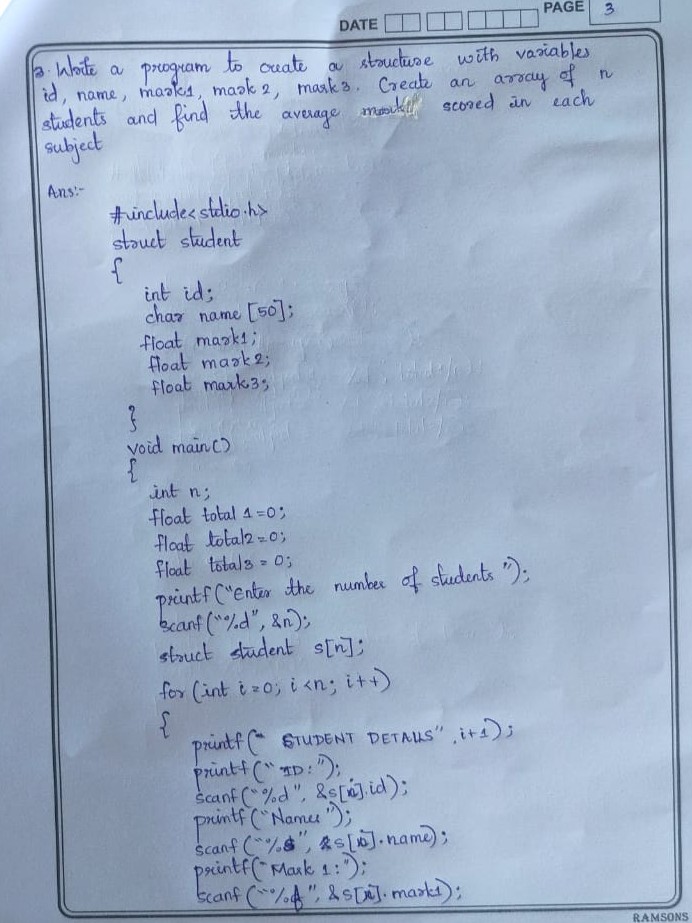 DATE PAGE 3
3. Write a program to create a structure with variables
id, name, mark1, mark 2, mark 3. Create an array of n
students and find the average mark scored in each
subject
Ans:-
#include<stdio.h>
struct student
{
int id;
char name [50];
float mark1;
float mark 2;
float mark3;
}
void main()
{
int n;
float total 1=0;
float total2=0;
float total3 = 0;
printf("Enter the number of students ");
scanf("%d", &n);
struct student s[n];
for (int i=0; i<n; i++)
{
printf(" STUDENT DETAILS", i+1);
printf(" ID:");
scanf("%d", &s[i].id);
printf("Name: ");
scanf("%s", &s[i].name);
printf("Mark 1:");
scanf("%f", &s[i].mark1);
RAMSONS